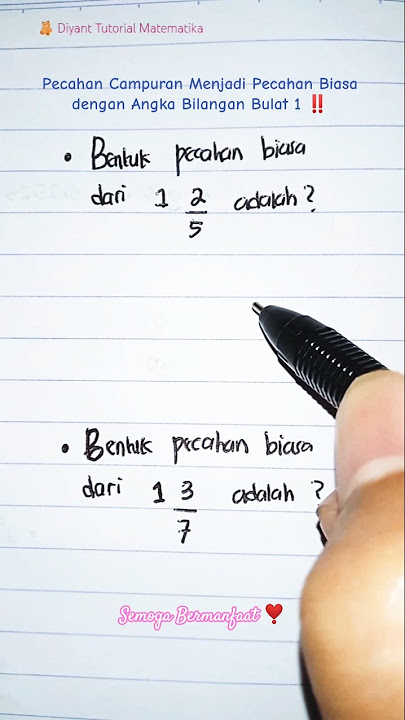 🧸 Diyant Tutorial Matematika
Pecahan Campuran Menjadi Pecahan Biasa
dengan Angka Bilangan Bulat 1 ‼️
• Bentuk pecahan biasa
dari 1 2/5 adalah?
• Bentuk pecahan biasa
dari 1 3/7 adalah?
Semoga Bermanfaat ❣️